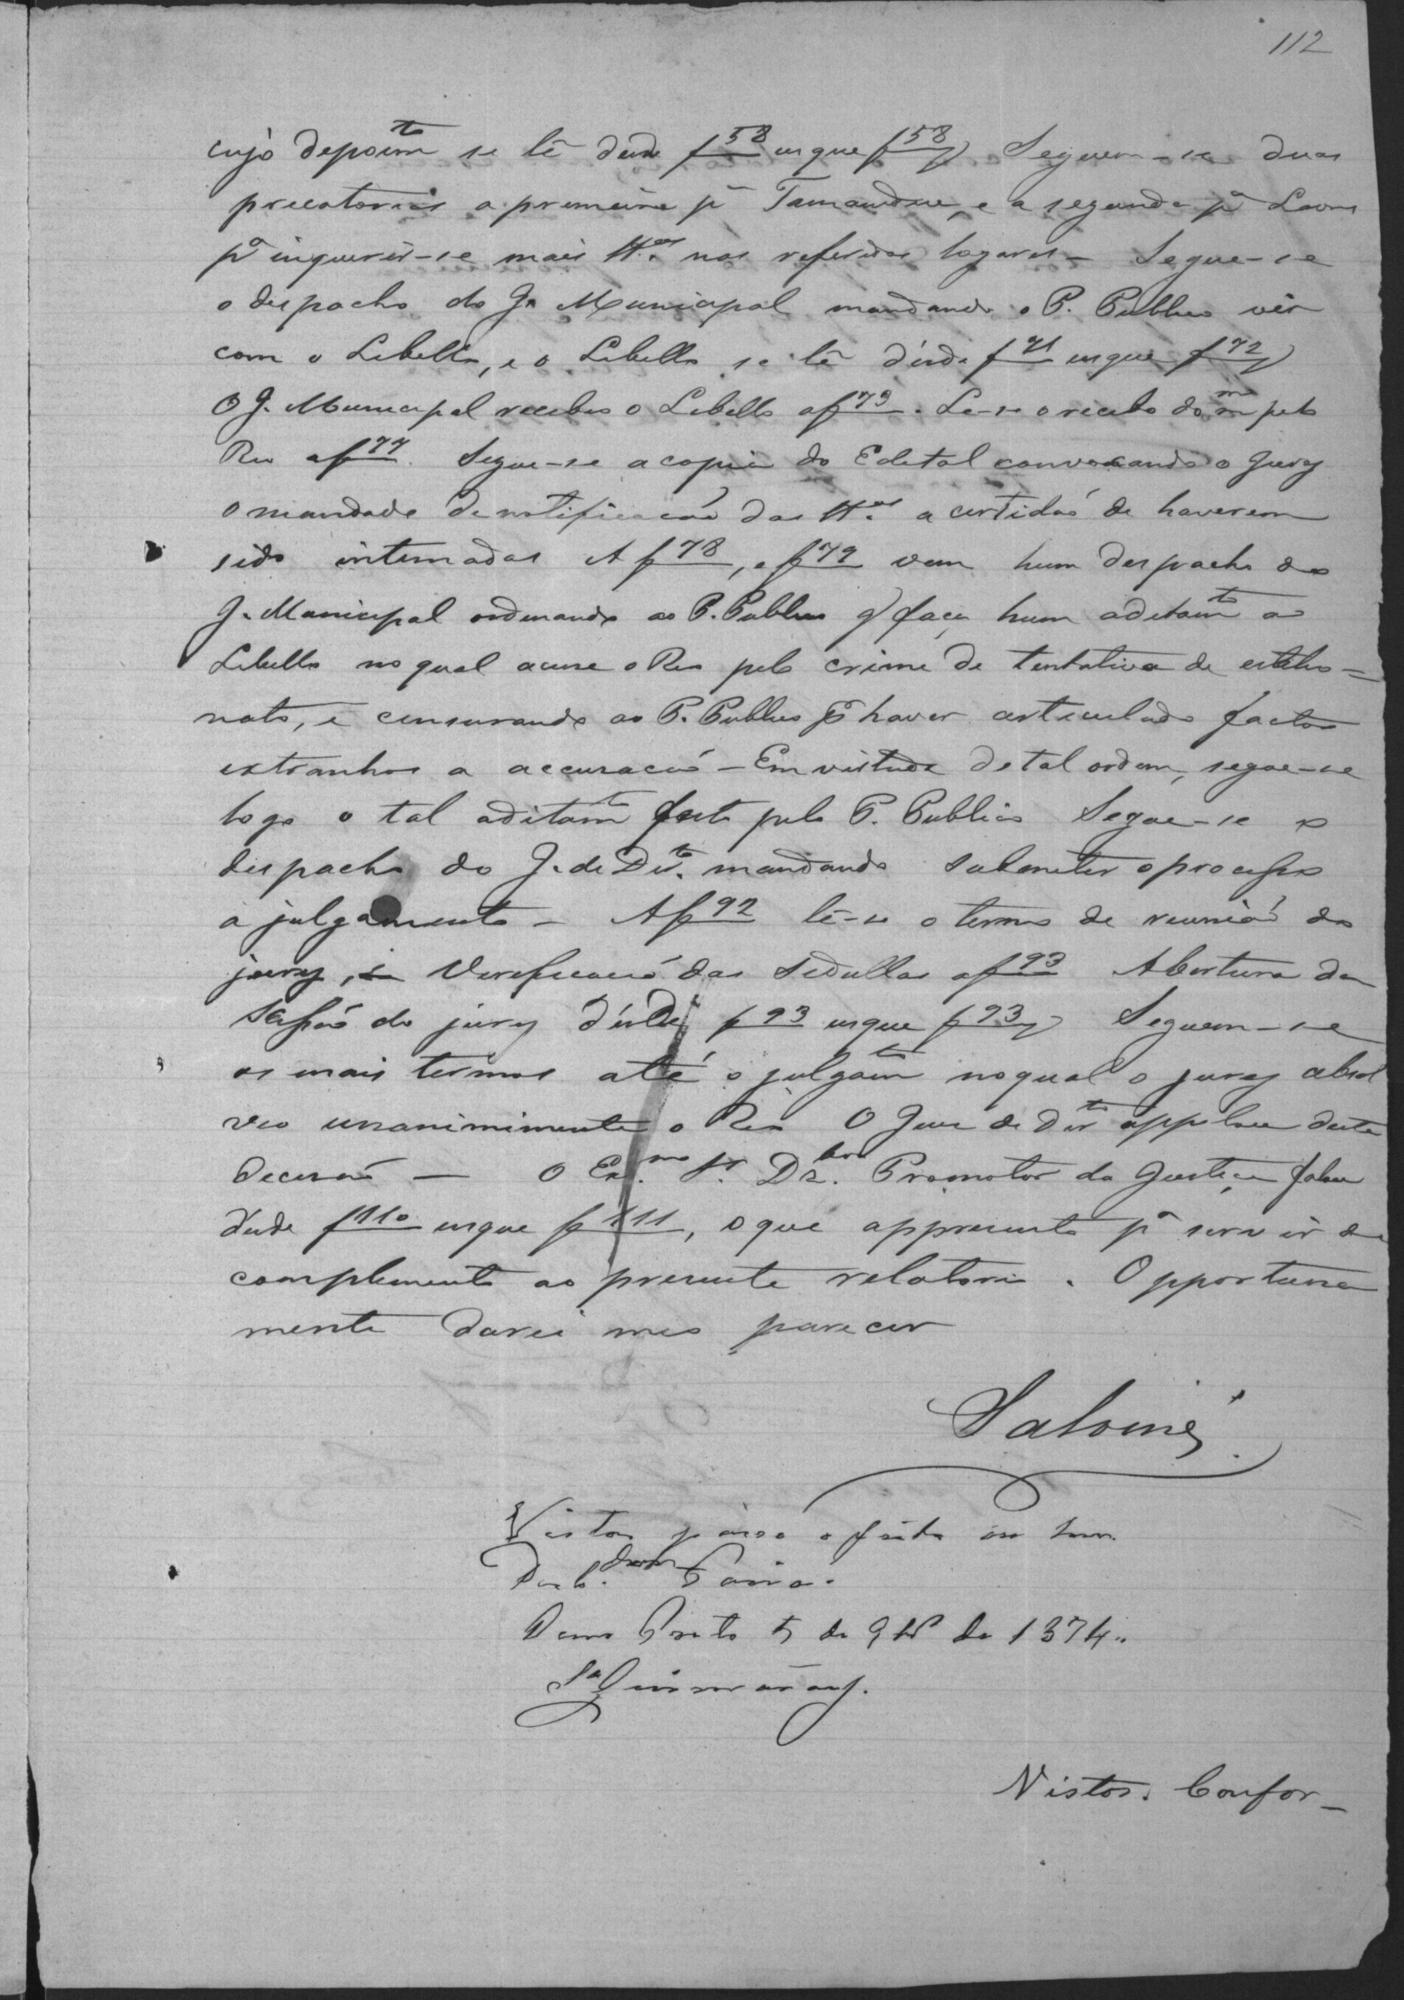 112
cujo depoim.to se lê desde f 58 usque f 58 v Seguem-se duas
precatorias a primeira p.a Tamandua, e a segunda p.a Lavras
p.a inquerir-se mais tt.as nos referidos logares - Segue-se
o despacho do J. Municipal mandando o P. Publico vir
com o Libello, e o Libello se lê désde f 71 usque f 72 v
O J. Municipal recebeo o Libello a f 73. Le-se o recibo do m.mo pelo
Reo a f 77. Segue-se a copia do Edital convocando o Jury
o mandado de notificacaõ das tt.as a certidaõ de haverem
sido intimadas A f 78, e f 79 vem hum despacho do
J. Municipal ordenando ao P. Publico q' faça hum aditam.to ao
Libello no qual acuse o Reo pelo crime de tentativa de estelio=
nato, e censurando ao P. Publico p.r haver articulado factos
extranhos a accusacaõ - Em virtude de tal ordem, segue-se
logo o tal aditam.to feito pelo P. Publico Segue-se o
despacho do J. de Dir.to mandando submeter o processo
a julgamento - A f 92 lê-se o termo de reuniaõ do
jury, e Verificacaõ das sedullas a f 93 Abertura da
Sessaõ do jury désde f 93 usque f 93 v Seguem-se
os mais termos até o julgam.to no qual o jury absol
veo unanimimente o Reo O Juiz de Dir.to appelou desta
decisaõ - O Ex.mo Sr. Dz.bor Promotor da Justiça falou
desde f 110 usque f 111, o que appresento p.a servir de
complemento ao presente relatorio. Opportuna
mente darei meo parecer
Salomé
Vistos passo o feito ao Snr.
Dezb.dor Paiva.
Ouro Preto 5 de 9br.o de 1874.
S.a Guimarães.
Vistos. Confor-